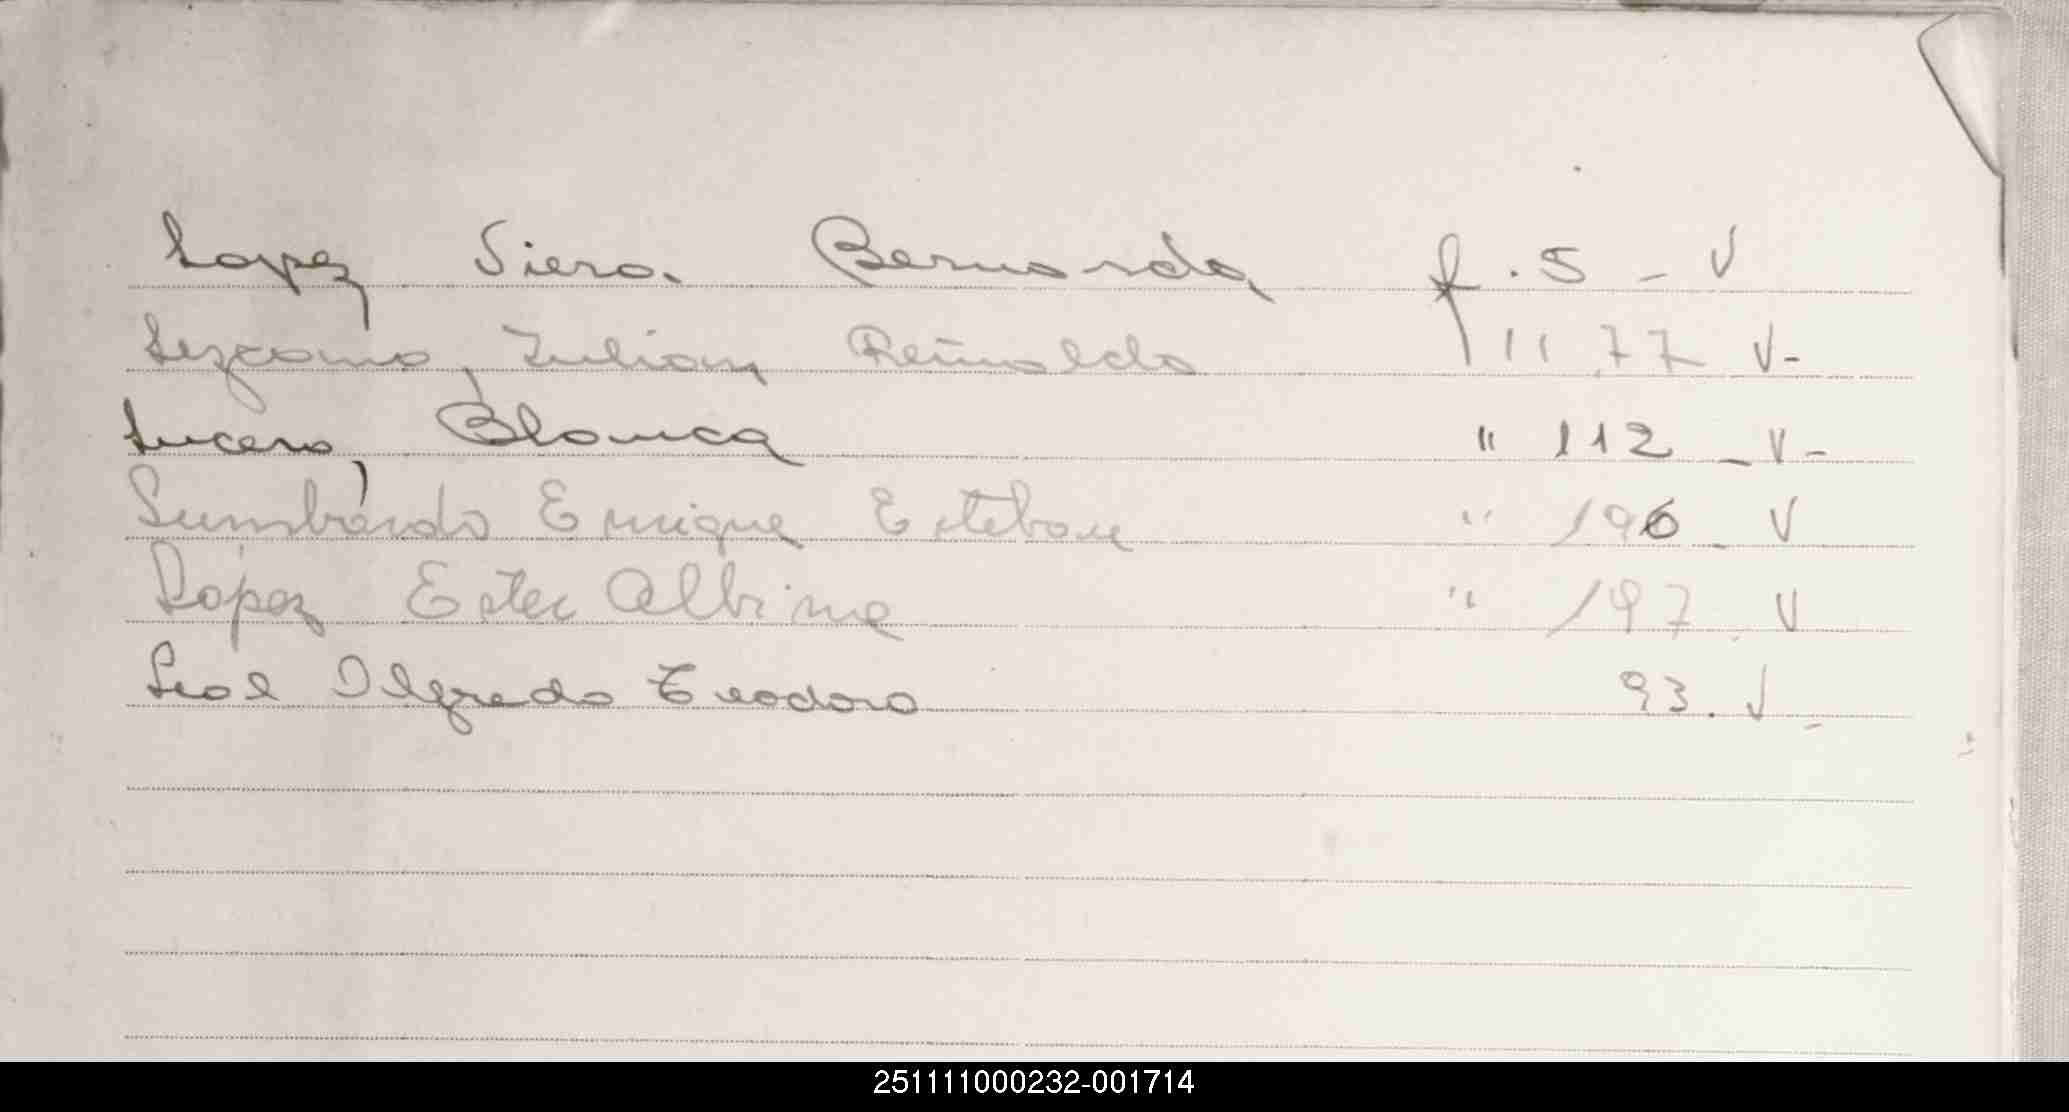 Lopez Siera Bernarda f. 5 - V
Lezcano, Julian Reinaldo " 77 V-
Lucero, Blanca " 112 - V-
Lumbardo Enrique Esteban " 196 - V
López Ester Albina " 197. V
Leal Alfredo Teodoro 93. V
251111000232-001714